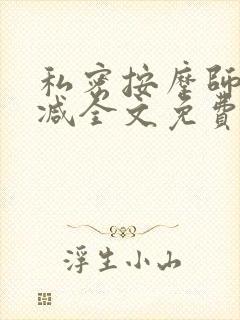 私密按摩師
减全文免費
浮生小山